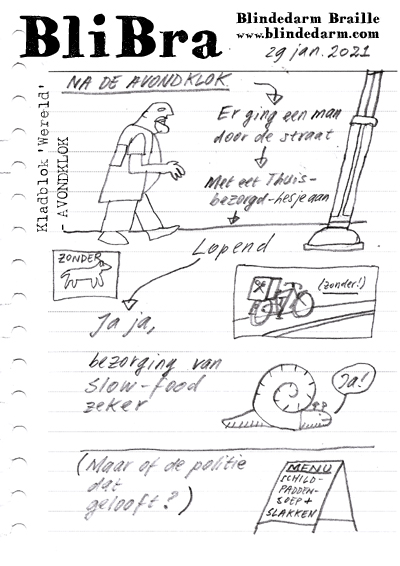 BliBra
Blindedarm Braille
www.blindedarm.com
29 jan. 2021
Kladblok 'Wereld'
- AVONDKLOK
NA DE AVONDKLOK
Er ging een man
door de straat
Met eet Thuis-
bezorgd-hesje aan
Lopend
ZONDER
(zonder!)
Ja ja,
bezorging van
Slow-food
zeker
Ja!
(Maar of de politie
dat
gelooft?)
MENU
SCHILD-
PADDEN-
SOEP +
SLAKKEN